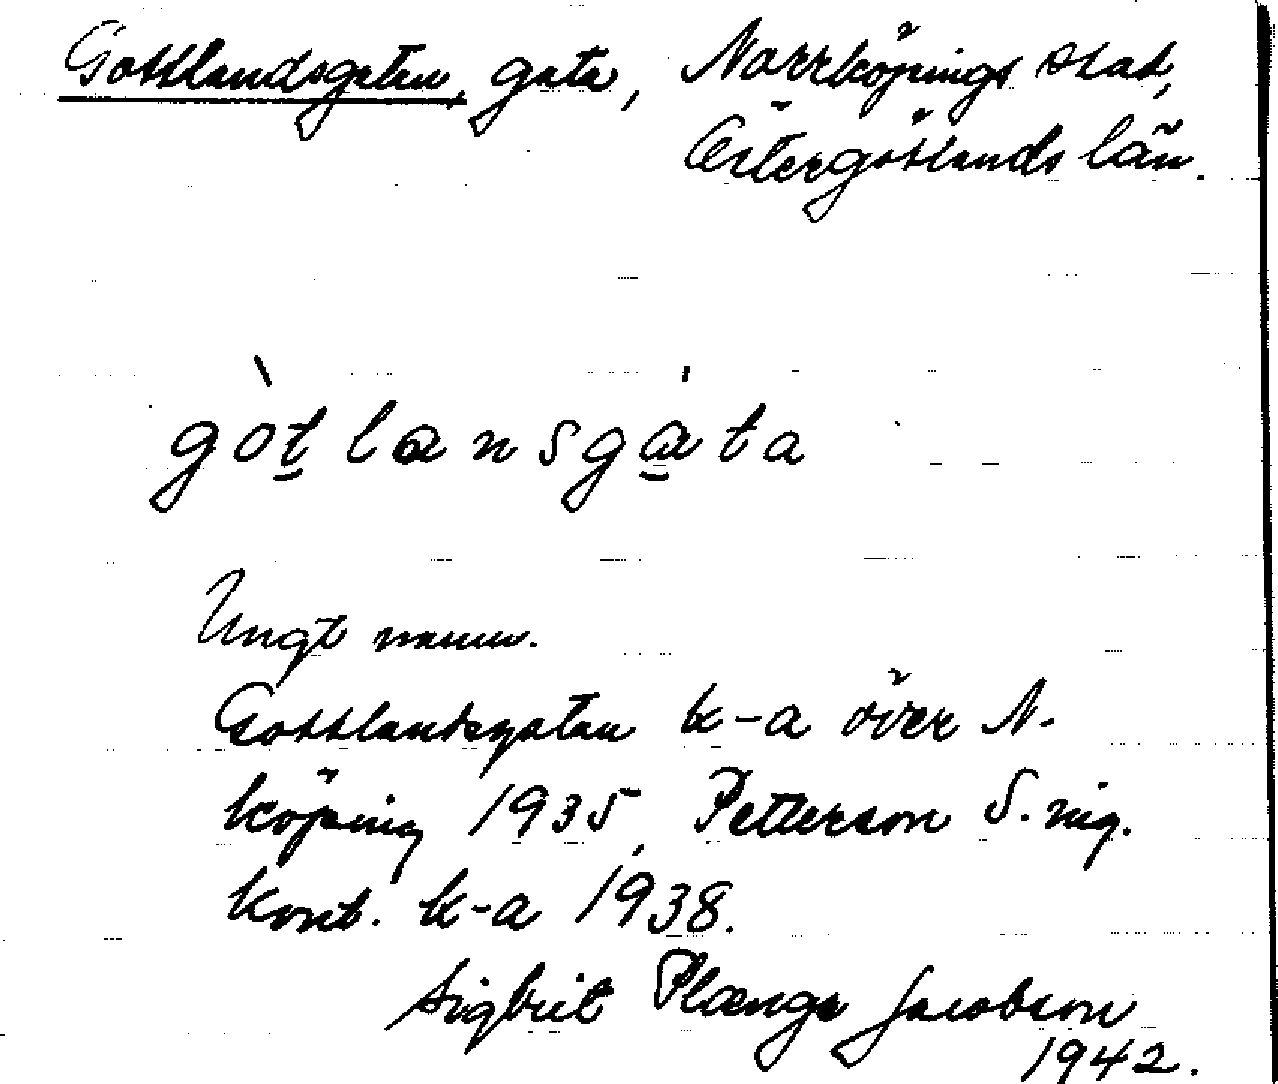 Gottlandsgatan, gata, Norrköpings stad,
Östergötlands län.
gòtlansgàta
Ungt namn.
Gottlandsgatan k-a över N-
köping 1935, Petterson S. ing.
kont. k-a 1938.
Sigbrit Plænge Jacobson
1942.